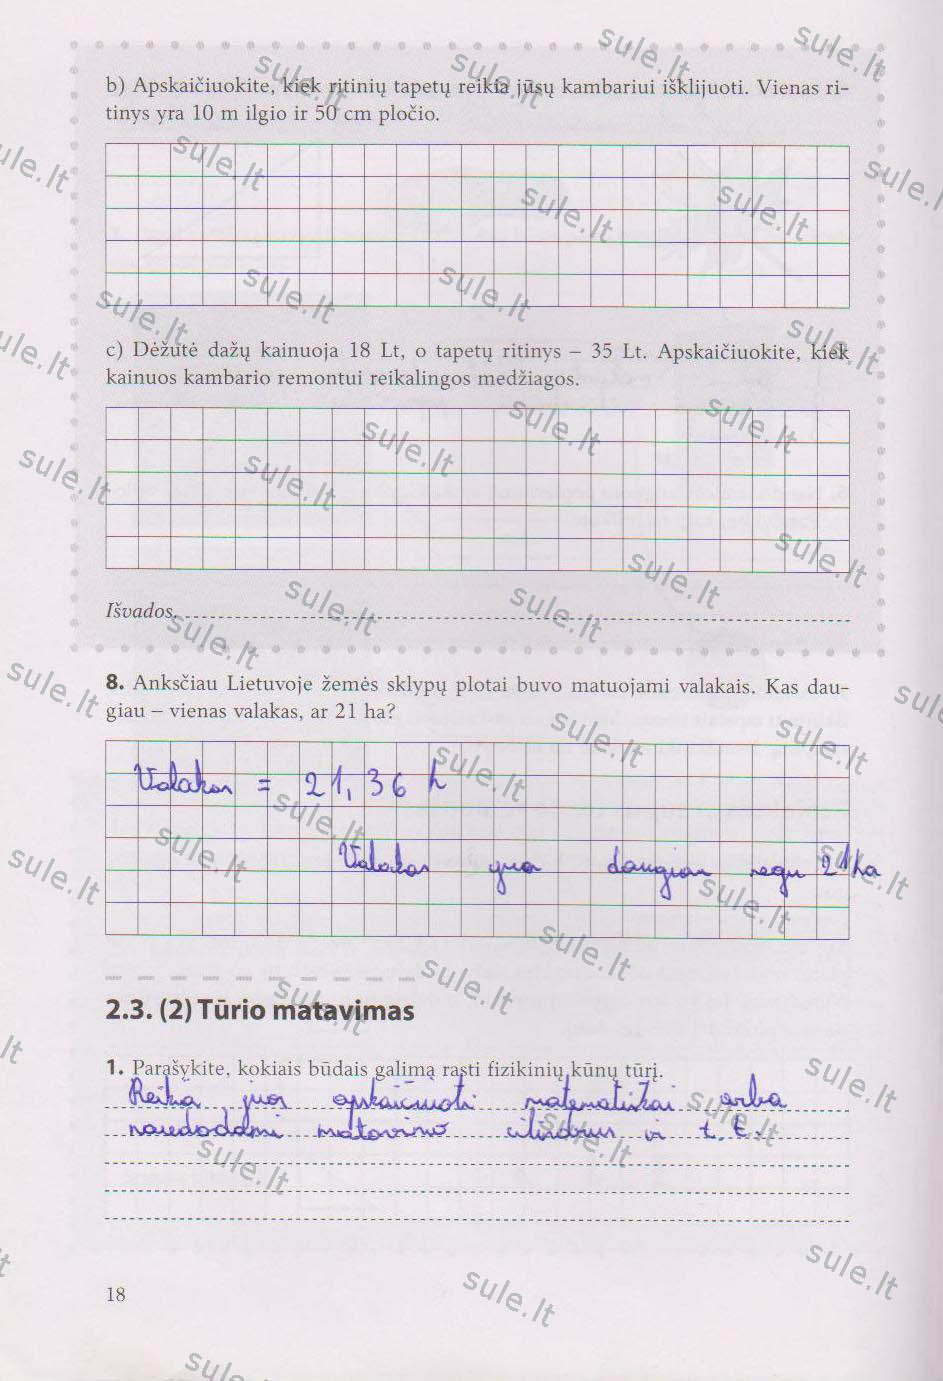 b) Apskaičiuokite, kiek ritinių tapetų reikia jūsų kambariui išklijuoti. Vienas ri-
tinys yra 10 m ilgio ir 50 cm pločio.
c) Dėžutė dažų kainuoja 18 Lt, o tapetų ritinys – 35 Lt. Apskaičiuokite, kiek
kainuos kambario remontui reikalingos medžiagos.
Išvados.
8. Anksčiau Lietuvoje žemės sklypų plotai buvo matuojami valakais. Kas dau-
giau – vienas valakas, ar 21 ha?
Valakas = 21,36 h
Valakas yra daugiau negu 21 ha
2.3. (2) Tūrio matavimas
1. Parašykite, kokiais būdais galima rasti fizikinių kūnų tūrį.
Reikia juos apskaičiuoti matematiškai arba
naudodami matavimo cilindrus ir t. t.
18
sule.lt